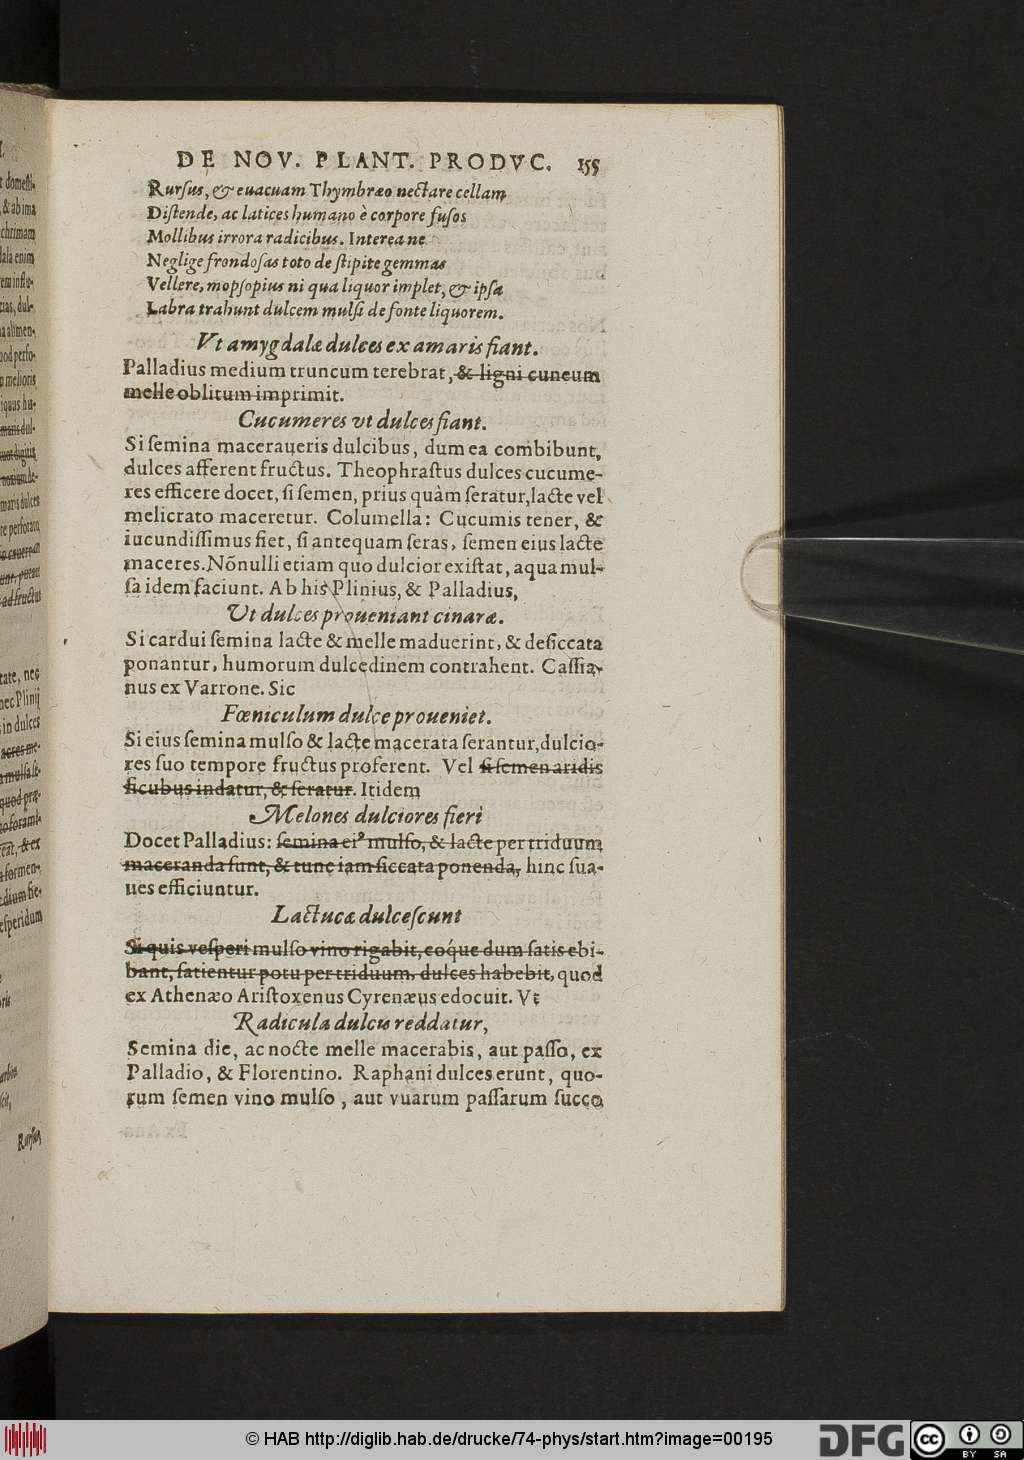 DE NOV. PLANT. PRODVC. 155
Rursus, & euacuam Thymbræo nectare cellam
Distende, ac latices humano è corpore fusos
Mollibus irrora radicibus. Interea ne
Neglige frondosas toto de stipite gemmas
Vellere, mopsopius ni qua liquor implet, & ipsa
Labra trahunt dulcem mulsi de fonte liquorem.
Vt amygdalæ dulces ex amaris fiant.
Palladius medium truncum terebrat, & ligni cuneum
melle oblitum imprimit.
Cucumeres vt dulces fiant.
Si semina maceraueris dulcibus, dum ea combibunt,
dulces afferent fructus. Theophrastus dulces cucume-
res efficere docet, si semen, prius quàm seratur, lacte vel
melicrato maceretur. Columella: Cucumis tener, &
iucundissimus fiet, si antequam seras, semen eius lacte
maceres. Nõnulli etiam quo dulcior existat, aqua mul-
sa idem faciunt. Ab his Plinius, & Palladius,
Vt dulces proueniant cinaræ.
Si cardui semina lacte & melle maduerint, & desiccata
ponantur, humorum dulcedinem contrahent. Cassia-
nus ex Varrone. Sic
Fœniculum dulce proueniet.
Si eius semina mulso & lacte macerata serantur, dulcio-
res suo tempore fructus proferent. Vel si semen aridis
ficubus indatur, & seratur. Itidem
Melones dulciores fieri
Docet Palladius: semina eiꝰ mulso, & lacte per triduum
maceranda sunt, & tunc iam siccata ponenda, hinc sua-
ues efficiuntur.
Lactucæ dulcescunt
Si quis vesperi mulso vino rigabit, eoq́ue dum satis ebi-
bant, satientur potu per triduum, dulces habebit, quod
ex Athenæo Aristoxenus Cyrenæus edocuit. Vt
Radicula dulcis reddatur,
Semina die, ac nocte melle macerabis, aut passo, ex
Palladio, & Florentino. Raphani dulces erunt, quo-
rum semen vino mulso, aut vuarum passarum succo
© HAB http://diglib.hab.de/drucke/74-phys/start.htm?image=00195
DFG
cc BY SA